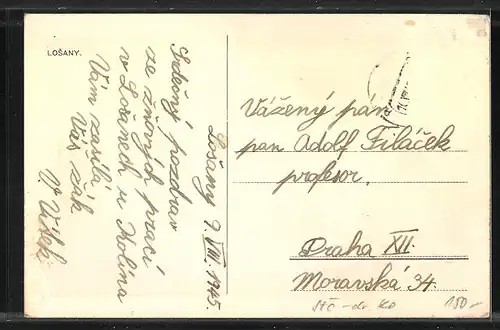 LOŠANY.
Lošany 9. VIII. 1945.
Srdečný pozdrav
ze žňových prací
v Lošanech u Kolína
Vám zasílá
Váš žák
Vážený pán
pan Adolf Filáček
profesor.
Praha XII.
Moravská 34.
150-